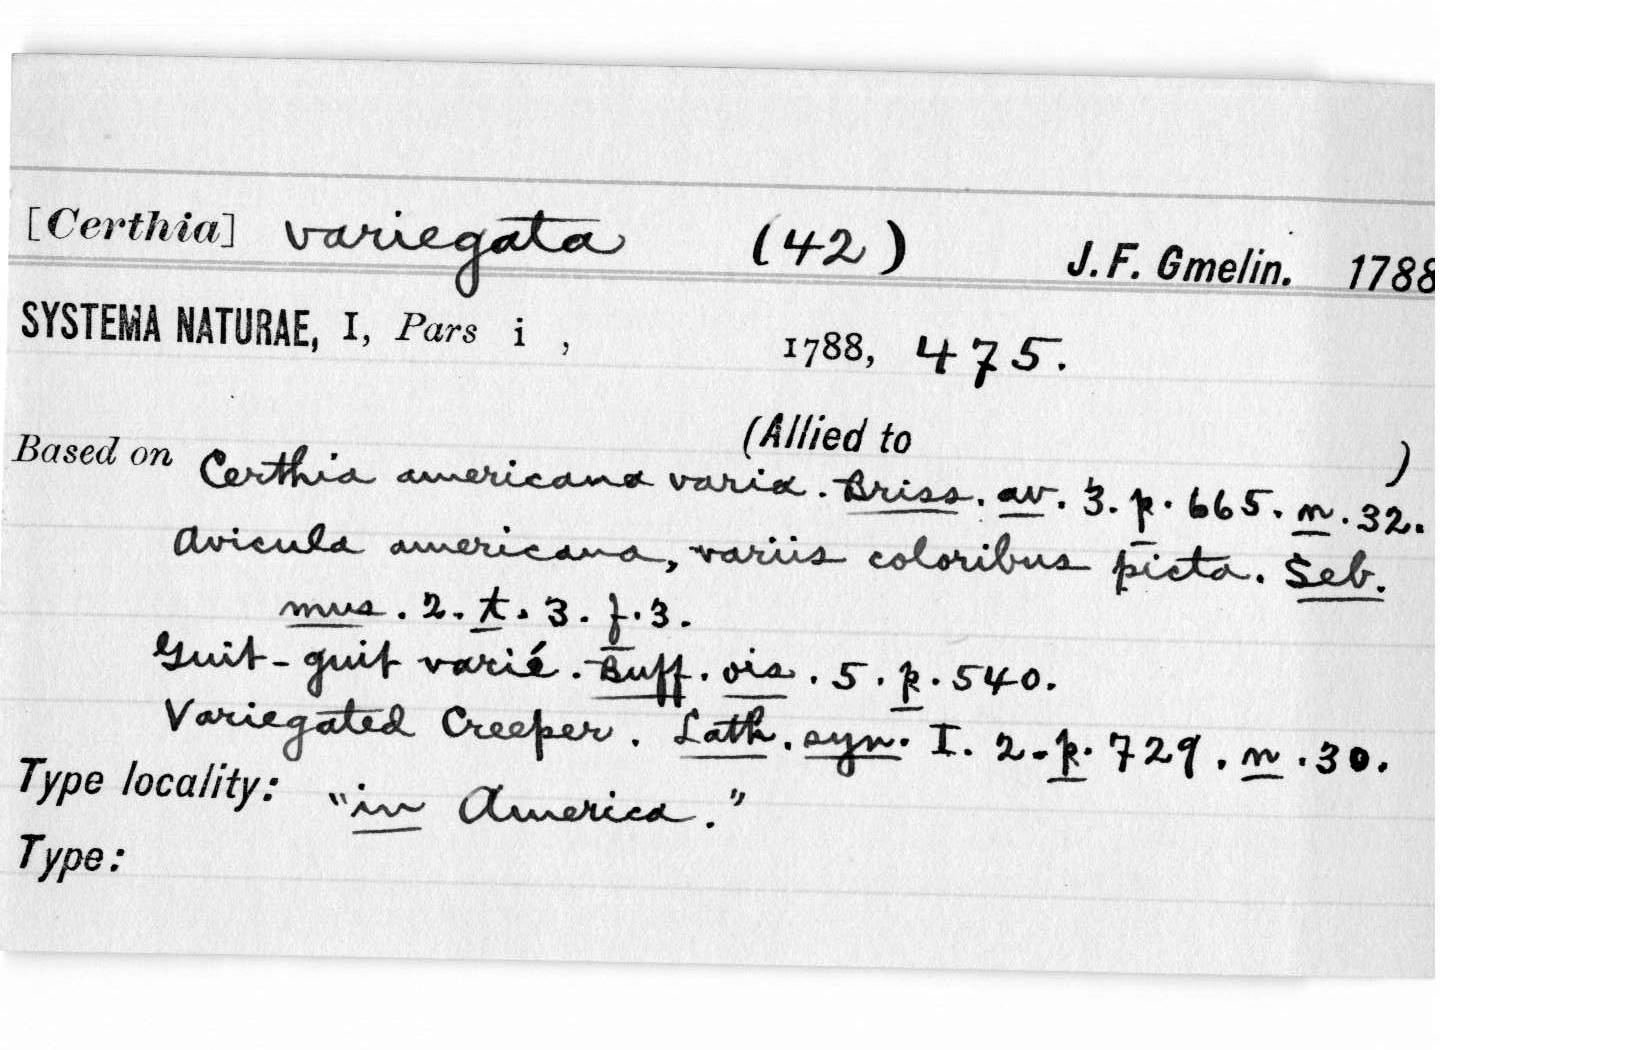 [Certhia] variegata (42) J. F. Gmelin. 1788
SYSTEMA NATURAE, I, Pars i , 1788, 475.
(Allied to )
Based on Certhia americana varia. Briss. av. 3. p. 665. n. 32.
Avicula americana, variis coloribus picta. Seb.
mus. 2. t. 3. f. 3.
Guit-guit varié. Buff. ois. 5. p. 540.
Variegated Creeper. Lath. syn. I. 2. p. 729. n. 30.
Type locality: "in America."
Type: